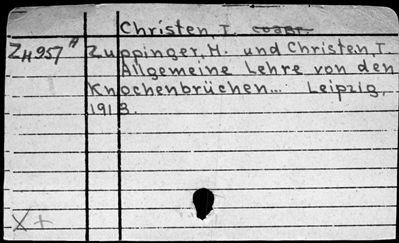 Christen, T. coавт.
ZH957" Zuppinger, H. und Christen, T.
Allgemeine Lehre von den
Knochenbrüchen... Leipzig,
1913.
X+